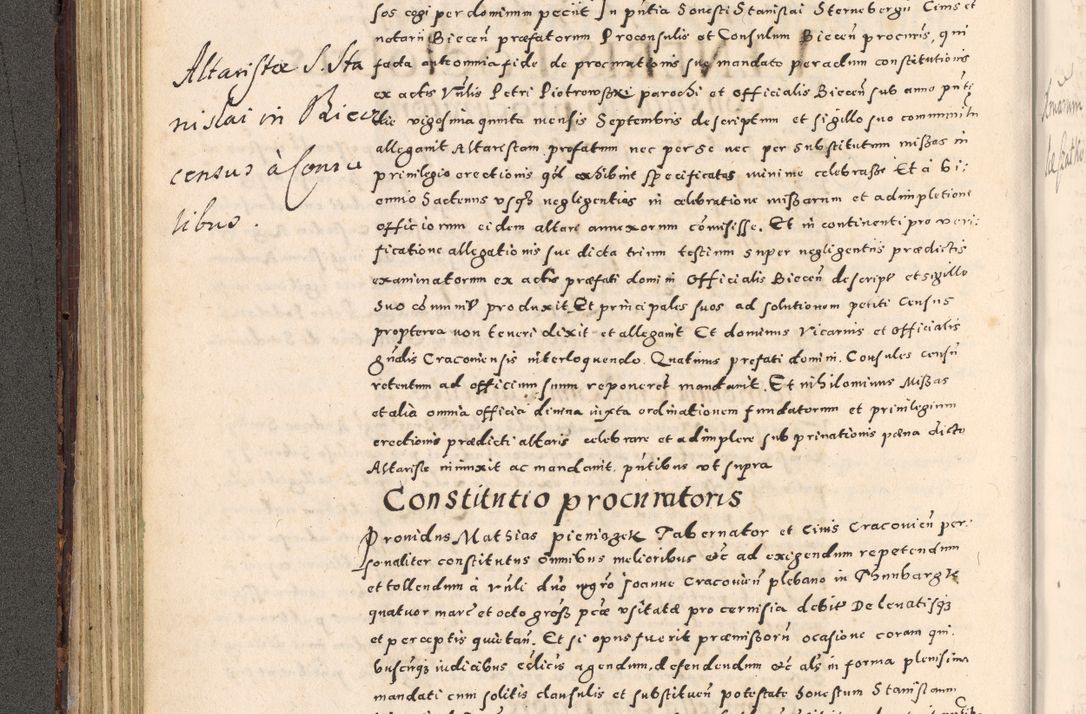 sos cogi per dominum peciit In pñtia Honesti Stanislai Sternebergii Civis et
notarii Biecen̄ præfatorum Proconsulis et Consulum Biecen̄ procuris, qui
facta ante omnia fide de procurationis suæ mandato per actum constitutionis
ex actis Vñlis Petri Piotrowski parochi et officialis Biecen̄ sub anno pñti
die vigesima quinta mensis Septembris descriptum et sigillo suo communitũ
allegavit Altaristam profatum nec per se nec per substitutum missas in
privilegio erectionis qd exhibuit specificatas minime celebrasse Et à bi-
ennio hactenus vsq negligentias in celebratione missarum et adimpletione
officiorum eidem altari annexorum cõmisisse. Et in continenti pro veri-
ficatione allegationis sue dicta trium testium super negligentiis prædictis
examinatorum ex actis præfati domini officialis Biecen̄ descript et sigillo
suo cõmunit produxit, Et principales suos ad solutionem petiti census
propterea non teneri dixit et allegavit Et dominus Vicarius et officialis
gñalis Cracoviensis interloquendo. Quatinus prefati domini Consules censũ
retentum ad officium suum reponerẽt mandavit. Et nihilominus Missas
et alia omnia officia divina iuxta ordinationem fundatorum et privilegium
erectionis prædicti altaris celebrare et adimplere sub privationis pæna dicto
Altaristæ iniunxit ac mandavit. pñtibus vt supra
Altaristæ S. Sta
nislai in Biecz
census à Consu
libus.
Constitutio procuratoris
Providus Mathias pieniązek Tabernator et Civis Cracovien̄ per-
sonaliter constitutus omnibus melioribus etc ad exigendum repetendum
et tollendum à Vñli dño mgro Joanne Cracovien̄ plebano in
quatuor marc et octo gross pcæ vsitatæ pro cervisia debit De levatisq
et perceptis quietan̄. Et si opus fuerit præmissorũ ocasione coram qui-
buscũq iudicibus eclicis agendum, defendendum etc als in forma plenissima
mandati cum solitis clausulis et substituen̄ potestate Honestum Stanislaum